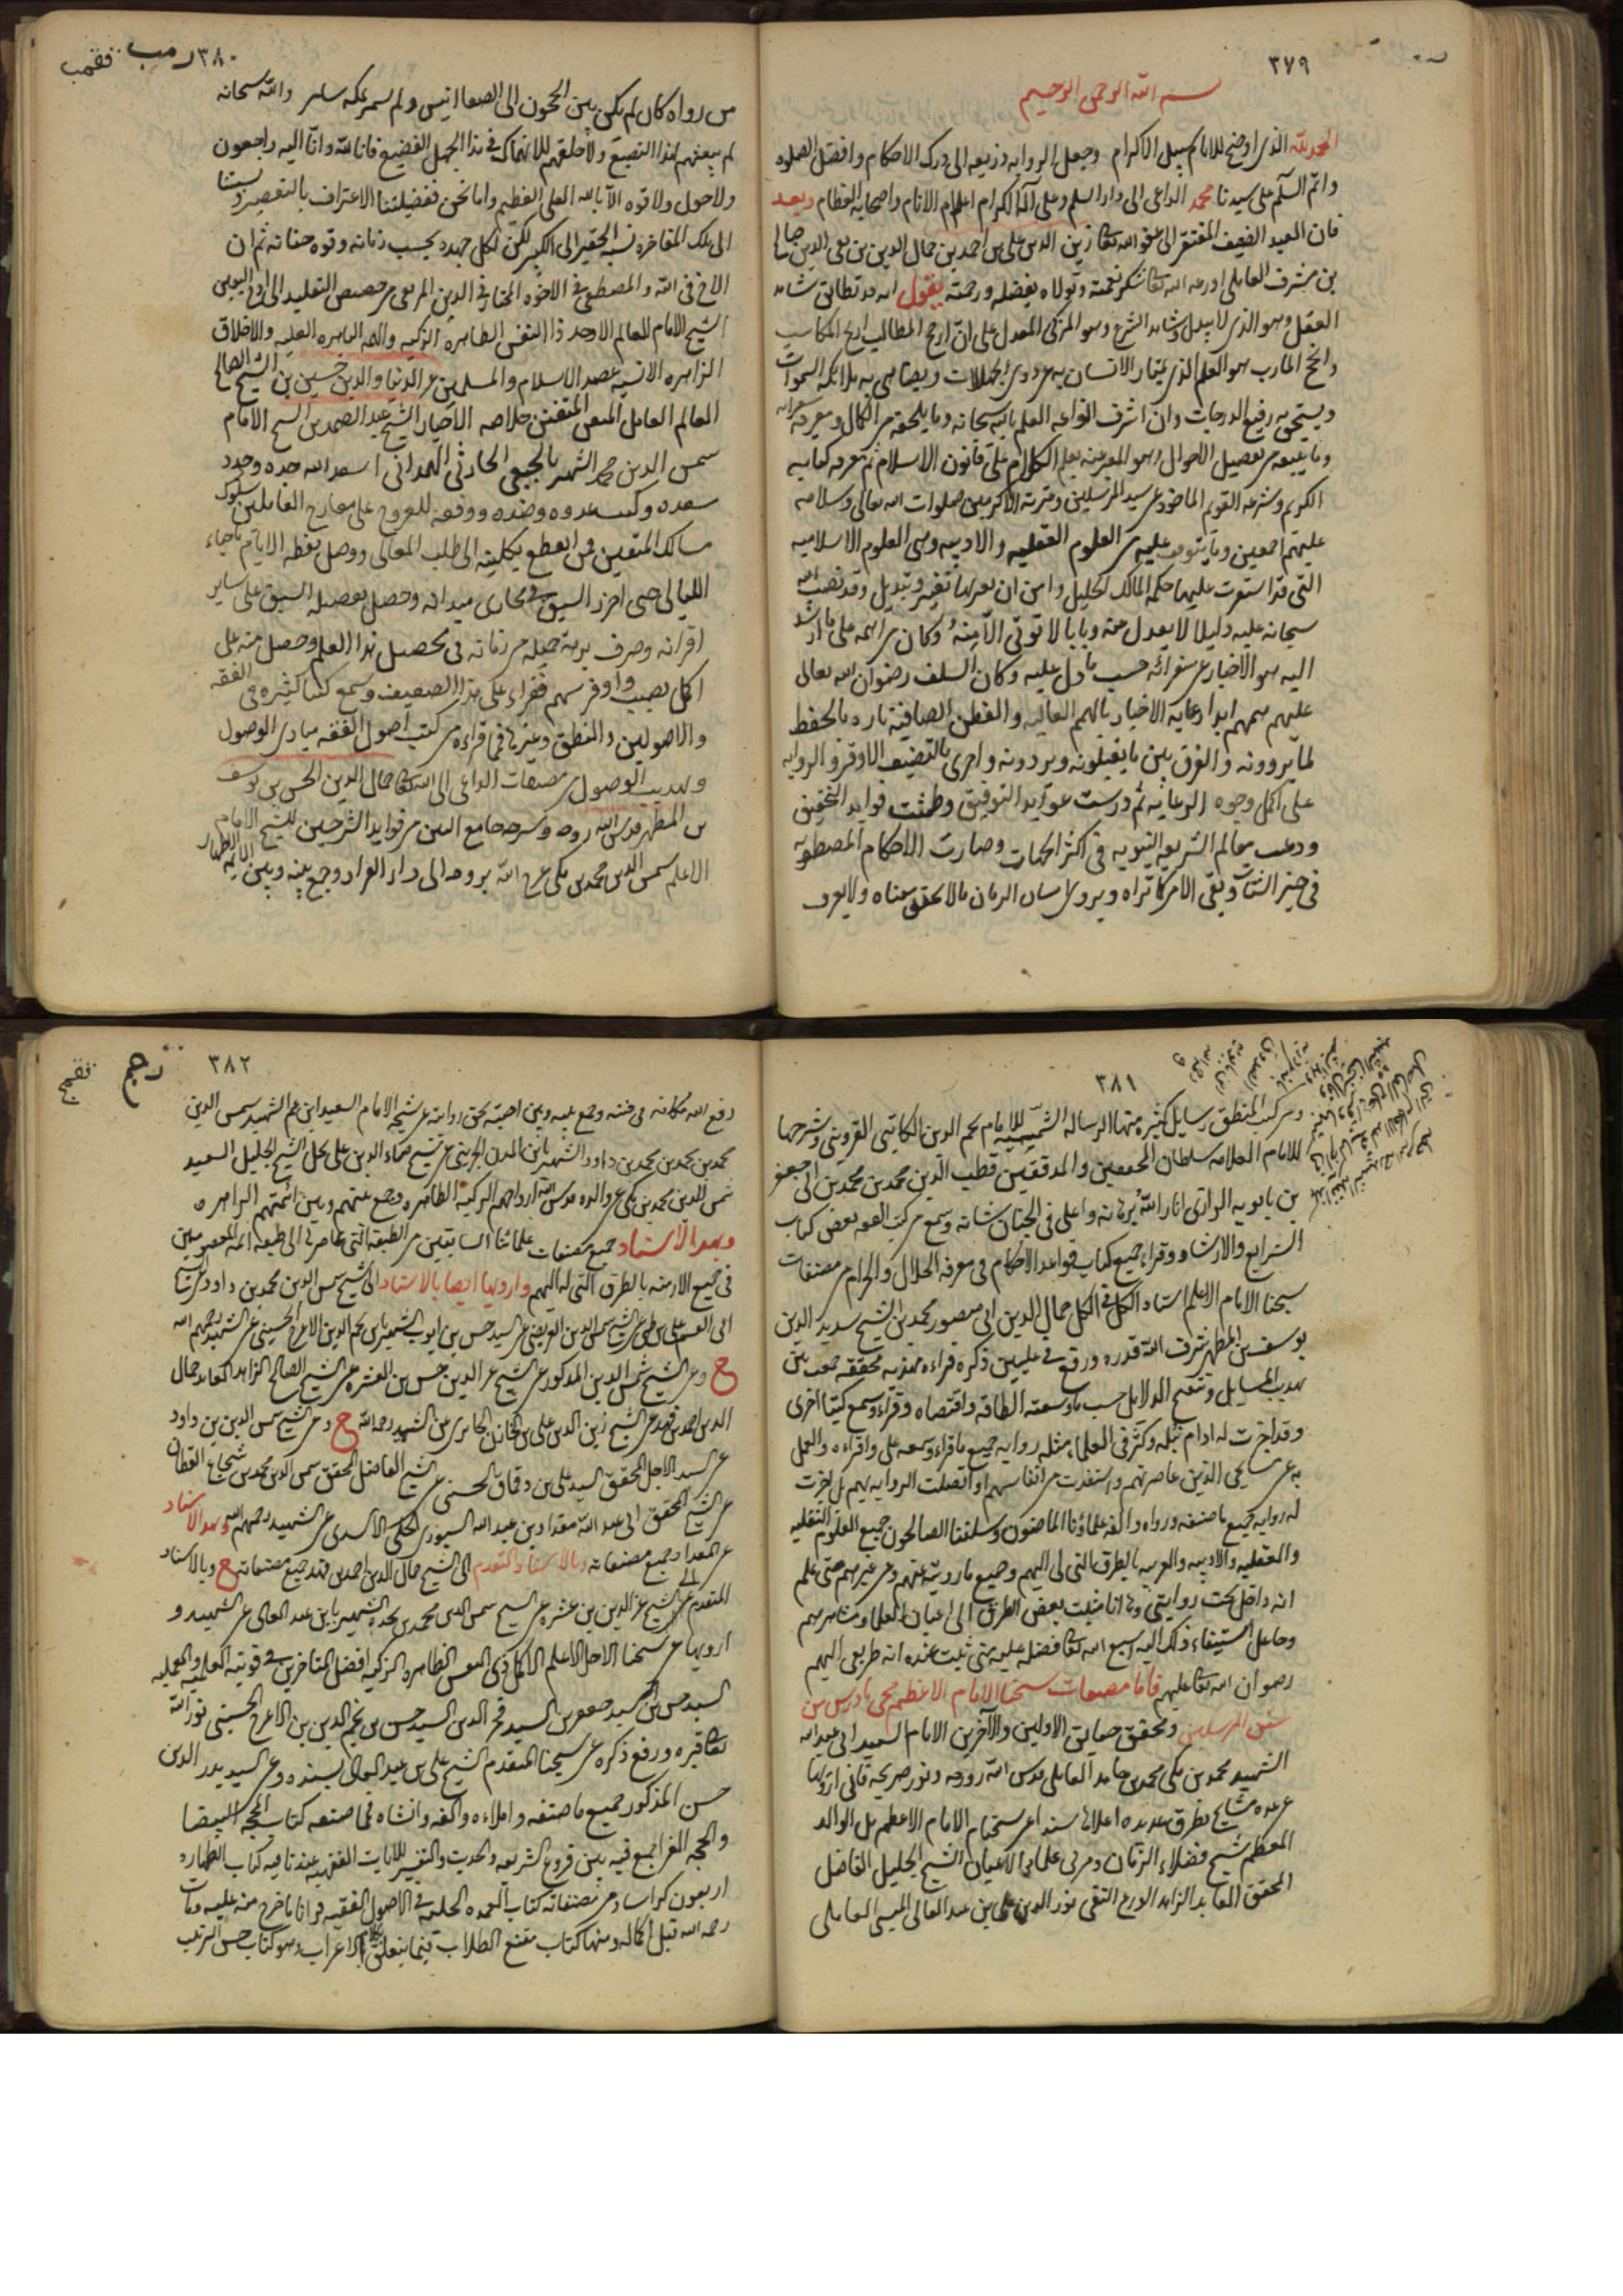 ٣٧٩
بسم الله الرحمن الرحيم
الحمد لله الذى اوضح للانام سبيل الاكرام وجعل الروايه ذريعه الى درك الاحكام وافضل الصلوه
واتم السلم على سيدنا محمد الداعى الى دار السلم وعلى آله الكرام اعلام الانام واصحابه العظام وبعد
فان العبد الضعيف المفتقر الى عفو الله تعالى زين الدين على بن احمد بن جمال الدين بن تقى الدين صالح
بن مشرف العاملى اوزعه الله تعالى شكر نعمته وتولاه بفضله ورحمته يقول انه قد تطابق شاهد
العقل وهو الذى لا يبدل وشاهد الشرع وهو المزكى المعدل على ان ارجح المطالب اربح المكاسب
وانجح المارب هو العلم الذى يمتاز الانسان به عن ذوى الجهالات ويضاهى به ملائكه السموات
ويستحق به رفيع الدرجات وان اشرف انواعه العلم بالله سبحانه وما يلحقه من الكمال ومعرفه سفرائه
وما يتبعه من تفصيل الاحوال وهو المعبر عنه بعلم الكلام على قانون الاسلام ثم معرفه كتابه
الكريم وشرعه القويم الماخوذ عن سيد المرسلين وعترته الاكرمين صلوات الله تعالى وسلامه
عليهم اجمعين وما يتوقف عليه من العلوم العقليه والادبيه وهى العلوم الاسلاميه
التى قد استقرت عليها حكمه المالك الجليل وامن ان يعتريها تغيير وتبديل وقد نصب الله
سبحانه عليه دليلا لا يعدل عنه وبابا لا توتى الا منه وكان من اهمه على ما ارشد
اليه هو الاخبار عن سفرائه حسب ما دل عليه وكان السلف رضوان الله تعالى
عليهم همهم ابدا رعايه الاخبار بالهمم العاليه والفطن الصافيه تاره بالحفظ
لما يروونه والفرق بين ما يقبلونه ويردونه واخرى بالتصنيف الاوفر والروايه
على اكمل وجوه الرعايه ثم درست عوايد التوفيق وطمثت فوايد التحقيق
وذهبت معالم الشريعه النبويه فى اكثر الجهات وصارت الاحكام المصطفويه
فى حيز الشتات وبقى الامر كما تراه ويروى انسان الزمان ما لا يحقق معناه ولا يعرف
٣٨٠
من رواه كان لم يكن بين الحجون الى الصفا انيس ولم يسمر بمكه سامر والله سبحانه
لم يبعثهم لهذا التضييع ولا خلقهم للانهماك فى هذا الجهل الفضيع فانا لله وانا اليه راجعون
ولا حول ولا قوه الا بالله العلى العظيم واما نحن ففضيلتنا الاعتراف بالتقصير ونسبتنا
الى تلك المفاخره نسبه الحقير الى الكبير لكن لكل جهده بحسب زمانه وقوه جنانه ثم ان
الاخ فى الله والمصطفى فى الاخوه المختار فى الدين المرتقى عن حضيض التقليد الى اوج اليقين
الشيخ الامام العالم الاوحد ذا النفس الطاهره الزكيه والهمه الباهره العليه والاخلاق
الزاهره الانسيه عضد الاسلام والمسلمين عز الدنيا والدين حسين بن الشيخ الصالح
العالم العامل المتقى المتفنن خلاصه الاخيار الشيخ عبد الصمد بن الشيخ الامام
شمس الدين محمد الشهير بالجبعى الحارثى الهمدانى اسعد الله جده وجدد
سعده وكبت عدوه وضده ووفقه للعروج على معارج العاملين وسلوك
مسالك المتقين ممن انقطع بكليته الى طلب المعالى ووصل يقظه الايام باحياء
الليالى حتى احرز السبق فى مجارى ميدانه وحصل بفضله السبق على ساير
اقرانه وصرف برهه جميله من زمانه فى تحصيل هذا العلم وحصل منه على
اكمل نصيب واوفر سهم فقراء على هذا الضعيف وسمع كتبا كثيره فى الفقه
والاصولين والمنطق وغيرها فمما قراءه من كتب اصول الفقه مبادى الوصول
وتهذيب الوصول من مصنفات الداعى الى الله تعالى جمال الدين الحسن بن يوسف
بن المطهر قدس الله روحه وشرحه جامع البين من فوايد الشرحين للشيخ الامام
الاعلم شمس الدين محمد بن مكى عرج الله بروحه الى دار القرار وجمع بينه وبين ائمته الاطهار
٣٨١
ومن كتب المنطق رسايل كثيره منها الرساله الشمسيه للامام نجم الدين الكاتبى القزوينى وشرحها
للامام العلامه سلطان المحققين والمدققين قطب الدين محمد بن محمد بن ابى جعفر
بن بابويه الرازى انار الله برهانه واعلى فى الجنان شانه وسمع من كتب الفقه بعض كتاب
الشرايع والارشاد وقراء جميع كتاب قواعد الاحكام فى معرفه الحلال والحرام من مصنفات
شيخنا الامام الاعلم استاد الكل فى الكل جمال الدين ابى منصور محمد بن الشيخ سديد الدين
يوسف بن المطهر شرف الله قدره ورفع فى عليين ذكره قراءه مهذبه محققه جمعت بين
تهذيب المسايل وتنقيح الدلايل حسب ما وسعته الطاقه واقتضاه وقراء وسمع كتبا اخرى
وقد اجزت له ادام الله نبله وكثر فى العلماء مثله روايه جميع ما قراءه وسمعه على واقراءه والعمل
به عن مشايخى الذين عاصرتهم واستفدت من انفاسهم او اتصلت الروايه بهم بل اجزت
له روايه جميع ما صنفه ورواه والفه علماؤنا الماضون وسلفنا الصالحون من جميع العلوم النقليه
والعقليه والادبيه والعربيه بالطرق التى لى اليهم وجميع ما رويته عنهم وعن غيرهم متى علم
انه داخل تحت روايتى وها انا مثبت بعض الطرق الى اعيان العلما ومشاهيرهم
رضوان الله تعالى عليهم فاما مصنفات شيخنا الامام الاعظم محيى ما درس من
سنن المرسلين ومحقق حقايق الاولين والآخرين الامام السعيد ابى عبد الله
الشهيد محمد بن مكى بن محمد بن حامد العاملى قدس الله روحه ونور ضريحه فانى ارويها
عن عده مشايخ بطرق عديده اعلاها سندا عن شيخنا الامام الاعظم بل الوالد
المعظم شيخ فضلاء الزمان ومربى علماء الاعيان الشيخ الجليل الفاضل
المحقق العابد الزاهد الورع التقى نور الدين على بن عبد العالى الميسى العاملى
٣٨٢
رفع الله مكانه فى جنته وجمع بينه وبين احبته بحق روايته عن شيخه الامام السعيد ابن عم الشهيد شمس الدين
محمد بن محمد بن محمد بن داود الشهير بابن المؤذن الجزينى عن الشيخ ضياء الدين على نجل الشيخ الجليل السعيد
شمس الدين محمد بن مكى عن والده قدس الله ارواحهم الزكيه الطاهره وجمع بينهم وبين ائمتهم الزاهره
وبهذا الاسناد جميع مصنفات علمائنا السابقين من الطبقه التى عاصرها الى طبقه ائمه المعصومين
فى جميع الازمنه بالطرق التى له اليهم وارويها ايضا بالاسناد الى الشيخ شمس الدين محمد بن داود عن الشيخ
ابى القسم على بن طى عن الشيخ شمس الدين العريضى عن السيد حسن بن ايوب الشهير بابن نجم الدين الاعرج الحسينى عن الشهيد رحمهم الله
ح وعن الشيخ شمس الدين المذكور عن الشيخ عز الدين حسن بن العشره عن الشيخ الصالح الزاهد العابد جمال
الدين احمد بن فهد عن الشيخ زين الدين على بن الخازن الحايرى عن الشهيد رحمه الله ح وعن الشيخ شمس الدين بن داود
عن السيد الاجل المحقق السيد على بن دقماق الحسنى عن الشيخ الفاضل المحقق شمس الدين محمد بن شجاع القطان
عن الشيخ المحقق ابى عبد الله مقداد بن عبد الله السيورى الحلى الاسدى عن الشهيد رحمهم الله وبهذا الاسناد
عن المقداد جميع مصنفاته وبالاسناد المتقدم الى الشيخ جمال الدين احمد بن فهد جميع مصنفاته ح وبالاسناد
المتقدم الى الشيخ عز الدين بن عشره عن الشيخ شمس الدين محمد بن نجده الشهير بابن عبد العالى عن الشهيد و
ارويها عن شيخنا الاجل الاعلم الاكمل ذى النفس الطاهره الزكيه افضل المتاخرين فى قوتيه العلميه والعمليه
السيد حسن بن السيد جعفر بن السيد فخر الدين السيد حسن بن نجم الدين بن الاعرج الحسينى نور الله
تعالى قبره ورفع ذكره عن شيخنا المتقدم الشيخ على بن عبد العالى بسنده وعن السيد بدر الدين
حسن المذكور جميع ما صنفه واملاءه والفه وانشاه فمما صنفه كتاب المحجه البيضا
والحجه الغرا جمع فيه بين فروع الشريعه والحديث والتفسير للايات الفقهيه عندنا فيه كتاب الطهاره
اربعون كراسا ومن مصنفاته كتاب العمده الجليه فى الاصول الفقهيه قرانا ما خرج منه عليه ومات
رحمه الله قبل اكماله ومنها كتاب مقنع الطلاب فيما يتعلق بكلام الاعراب وهو كتاب حسن الترتيب